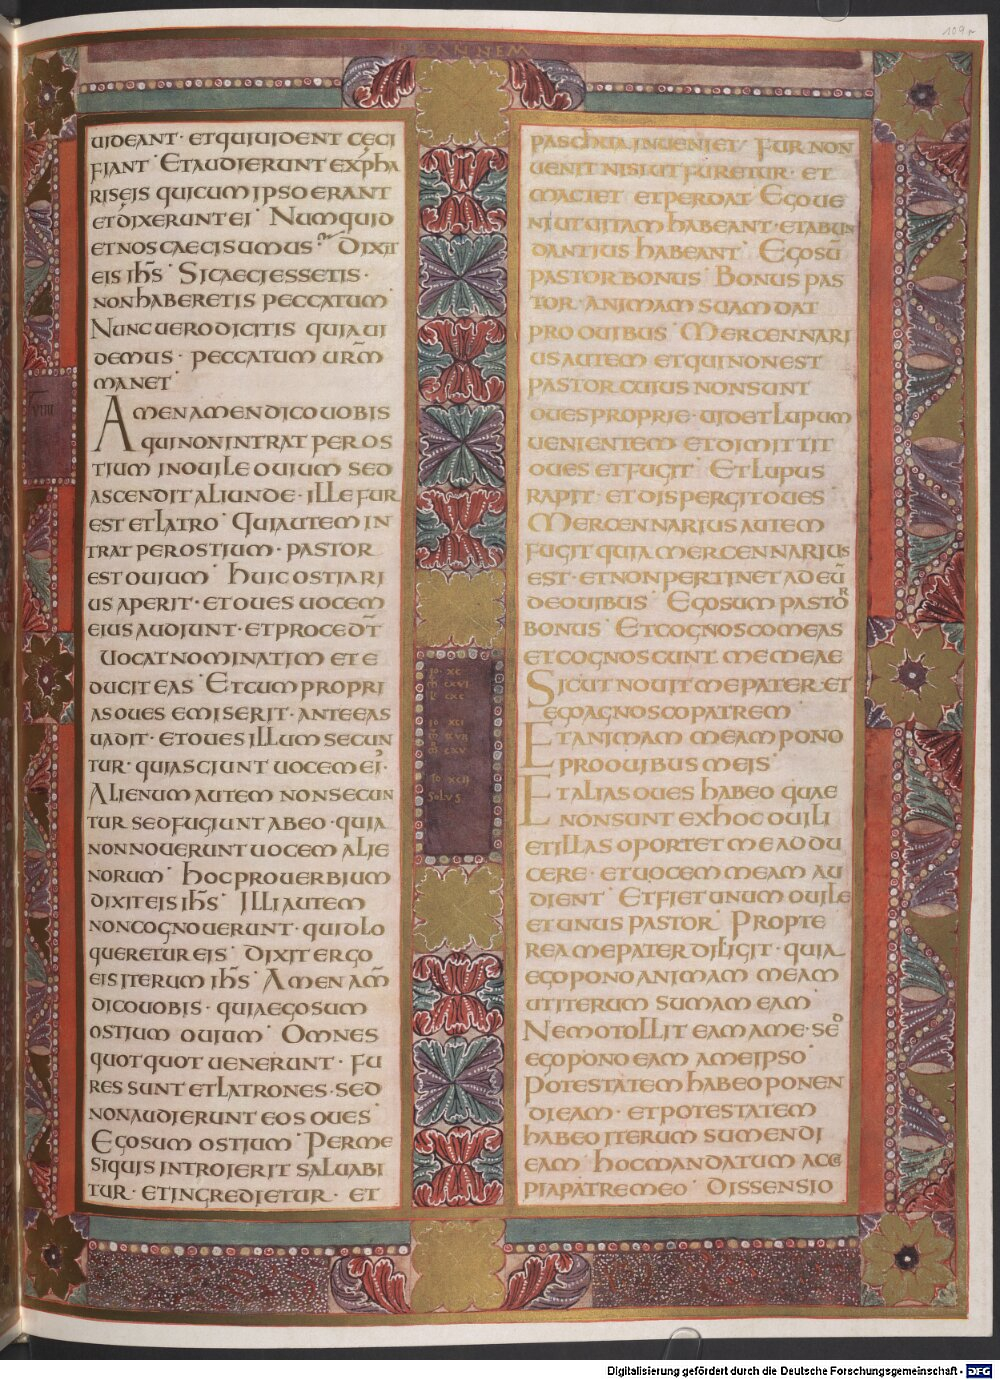 109r
IOHANNEM
UIDEANT· ETQUIUIDENT CECI
FIANT· ETAUDIERUNT EXPHA
RISEIS QUICUMIPSOERANT
ETDIXERUNTEI· NUMQUID
ETNOSCAECISUMUS? DIXIT
EIS IHS· SICAECIESSETIS·
NONHABERETIS PECCATUM·
NUNCUERODICITIS QUIAUI
DEMUS· PECCATUM URM
MANET·
AMENAMENDICOUOBIS
QUINONINTRAT PEROS
TIUM INOUILEOUIUM SED
ASCENDITALIUNDE· ILLEFUR
ESTETLATRO· QUIAUTEMIN
TRATPEROSTIUM· PASTOR
ESTOUIUM· HUICOSTIARI
USAPERIT· ETOUES UOCEM
EIUSAUDIUNT· ETPROCEDT
UOCATNOMINATIM ETE
DUCITEAS· ETCUMPROPRI
ASOUES EMISERIT· ANTEEAS
UADIT· ETOUESILLUMSECUN
TUR· QUIASCIUNT UOCEMEI·
ALIENUMAUTEM NONSECUN
TUR SEDFUGIUNTABEO· QUIA
NONNOUERUNTUOCEM ALIE
NORUM· HOCPROUERBIUM
DIXITEISIHS· ILLIAUTEM
NONCOGNOUERUNT· QUIDLO
QUERETUREIS· DIXITERGO
EISITERUM IHS· AMENAM
DICOUOBIS· QUIAEGOSUM
OSTIUM OUIUM· OMNES
QUOTQUOT UENERUNT· FU
RES SUNT ETLATRONES· SED
NONAUDIERUNT EOS OUES·
EGOSUM OSTIUM· PERME
SIQUIS INTROIERIT SALUABI
TUR· ETINGREDIETUR· ET
VIIII
IO XCI
SOLVS
PASCHUAINUENIET· FUR NON
UENIT NISIUTFURETUR· ET
MACTET ETPERDAT· EGOUE
NIUTUITAMHABEANT· ETABUN
DANTIUSHABEANT· EGOSU
PASTORBONUS· BONUS PAS
TOR· ANIMAM SUAMDAT
PROOUIBUS· MERCENNARI
USAUTEM ETQUINONEST
PASTOR CUIUS NONSUNT
OUESPROPRIE· UIDETLUPUM
UENIENTEM ETDIMITTIT
OUES ETFUGIT· ETLUPUS
RAPIT· ETDISPERGITOUES·
MERCENNARIUSAUTEM
FUGITQUIAMERCENNARIUS
EST· ETNONPERTINETADEU
DEOUIBUS· EGOSUMPASTOR
BONUS· ETCOGNOSCOMEAS
ETCOGNOSCUNT MEMEAE
SICUTNOUITMEPATER· ET
EGOAGNOSCOPATREM
ETANIMAM MEAMPONO
PROOUIBUSMEIS·
ETALIASOUES HABEO QUAE
NONSUNT EXHOCOUILI
ETILLAS OPORTETMEADDU
CERE· ETUOCEMMEAM AU
DIENT· ETFIETUNUMOUILE
ETUNUSPASTOR· PROPTE
REAMEPATERDILIGIT· QUIA
EGOPONOANIMAM MEAM
UTITERUM SUMAM EAM
NEMOTOLLIT EAMAME· SED
EGOPONOEAM AMEIPSO·
POTESTATEMHABEOPONEN
DIEAM· ETPOTESTATEM
HABEOITERUM SUMENDI
EAM· HOCMANDATUMACCE
PIAPATREMEO· DISSENSIO
Digitalisierung gefördert durch die Deutsche Forschungsgemeinschaft - DFG